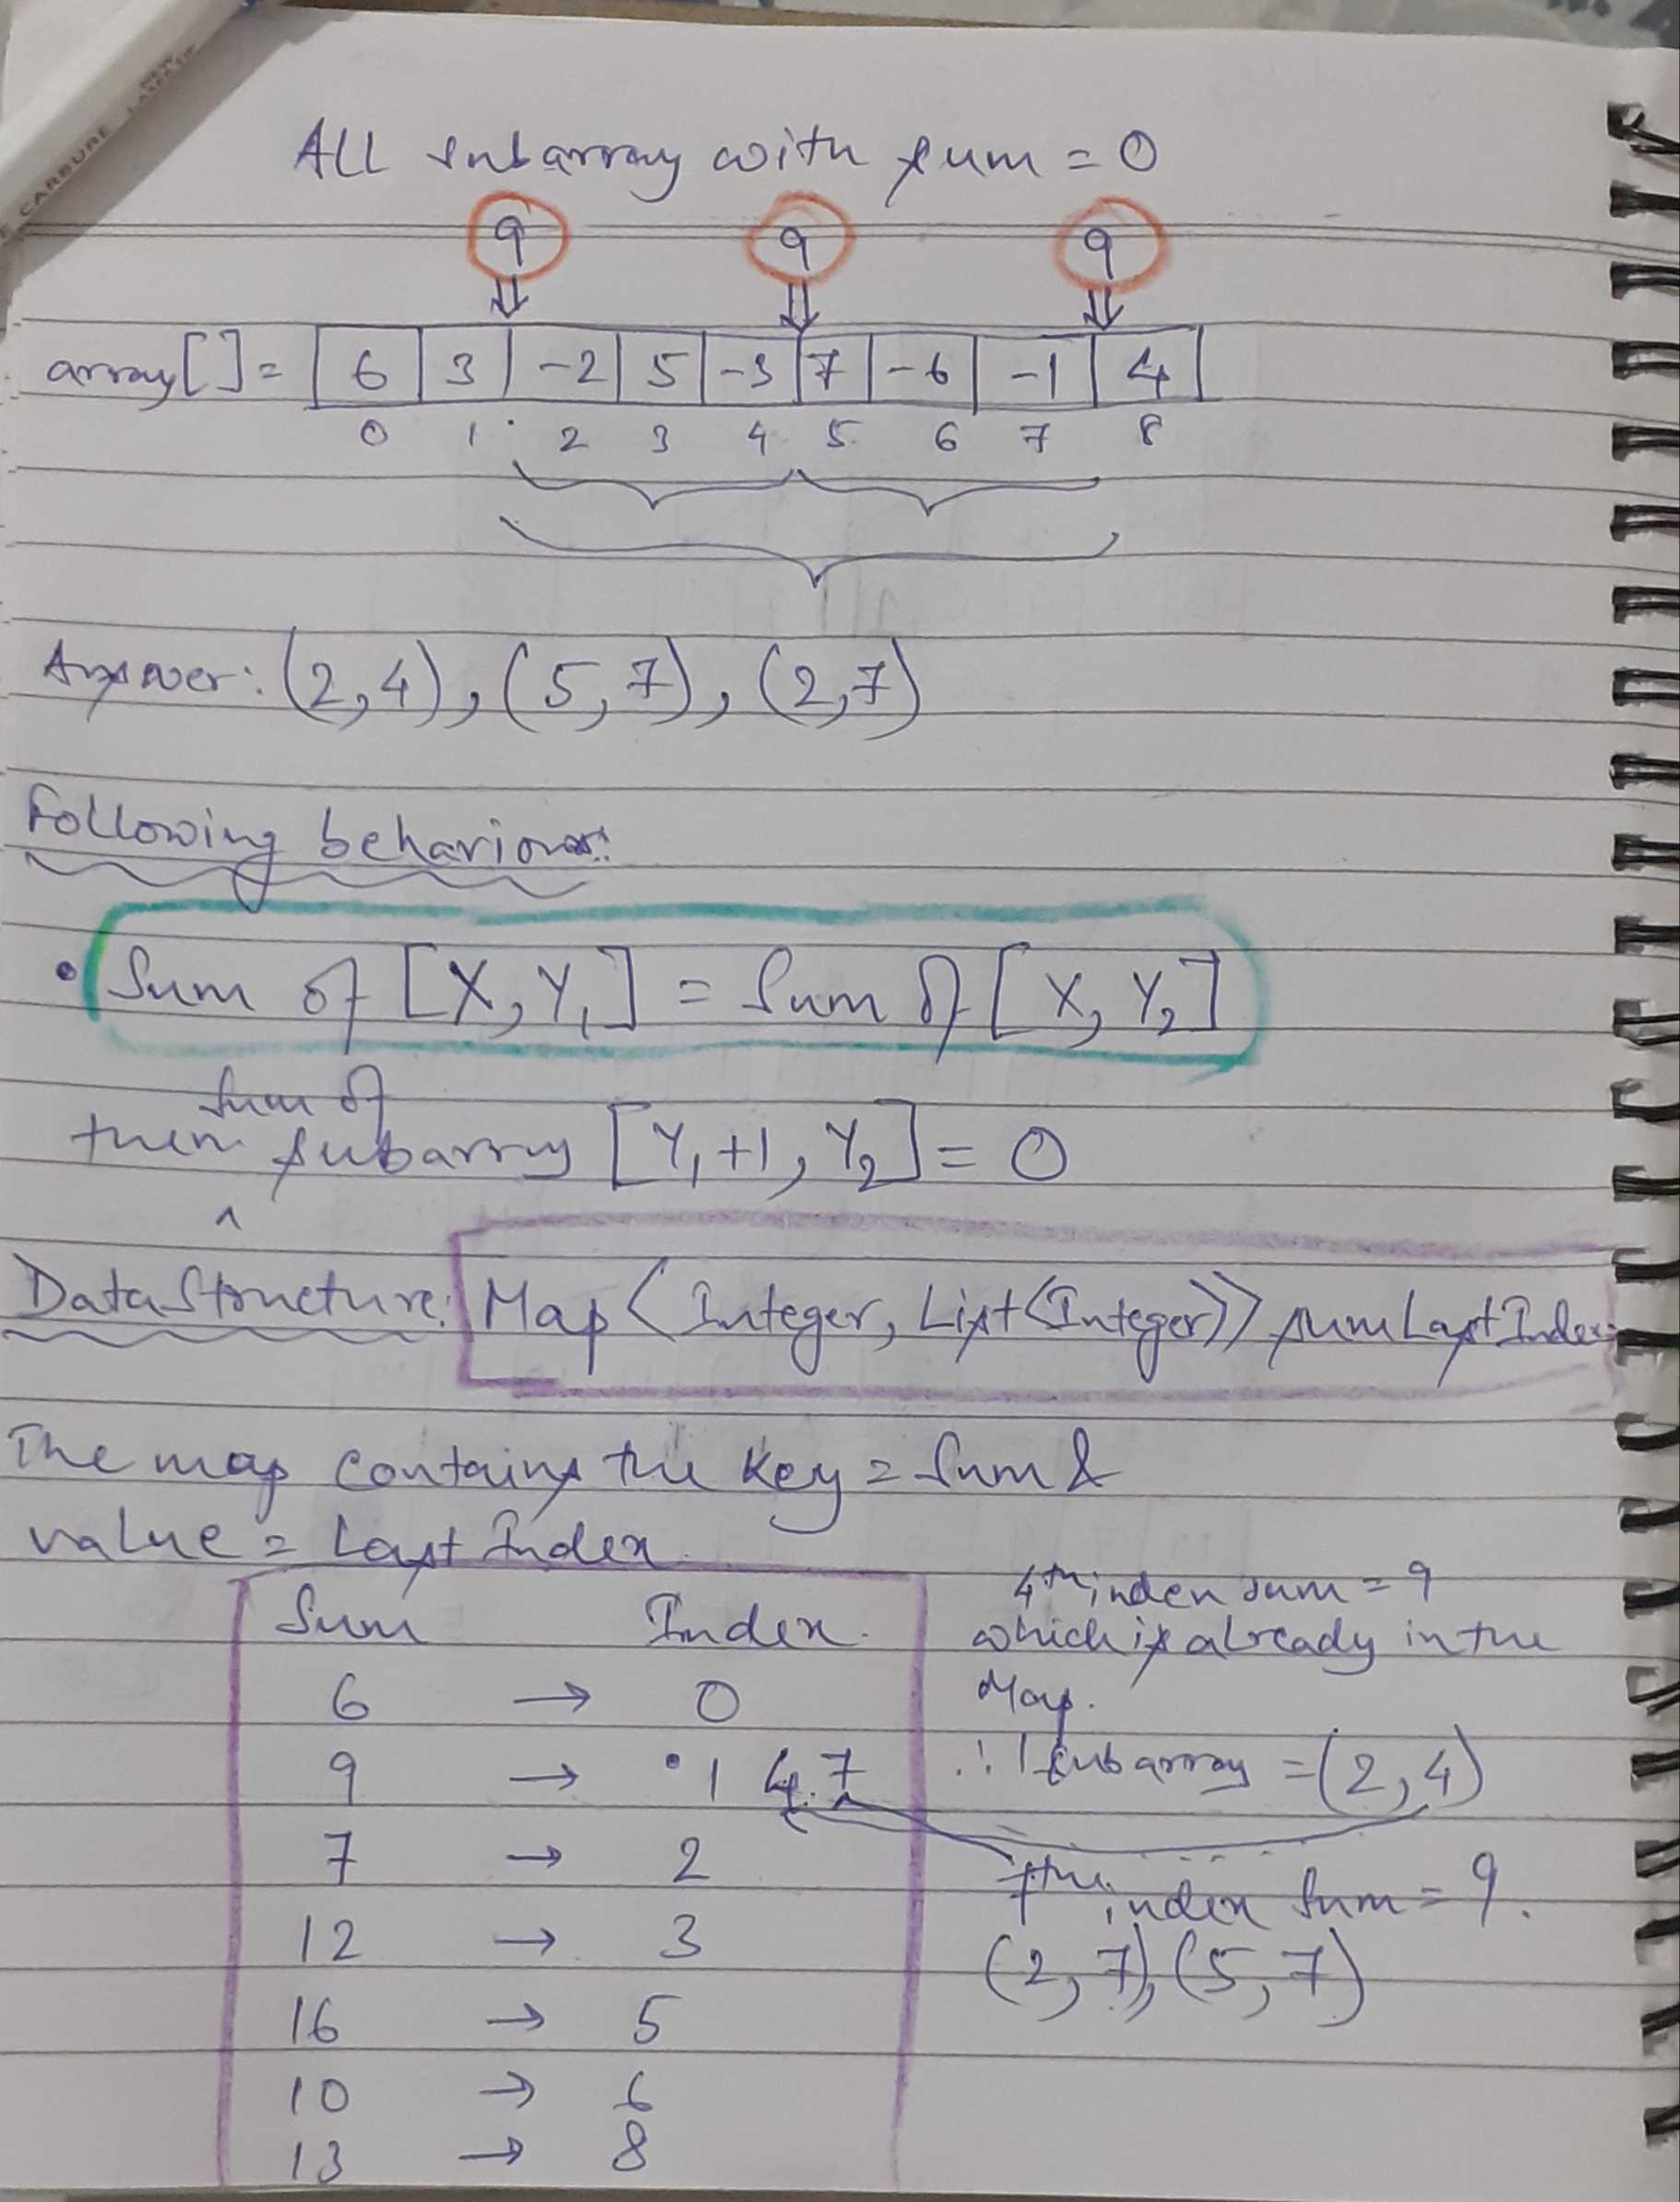 NEW
CARBURE LASER TIP
All subarray with sum = 0
9 9 9
⇓ ⇓ ⇓
array[] = 6 3 -2 5 -3 7 -6 -1 4
0 1 2 3 4 5 6 7 8
Answer: (2,4), (5,7), (2,7)
Following behaviour:
• Sum of [X, Y₁] = Sum of [X, Y₂]
sum of
then subarry [Y₁+1, Y₂] = 0
^
Data Structure: Map<Integer, List<Integer>> sumLastIndex
The map contains the key = Sum &
value = Last Index
Sum Index.
6 → 0
9 → 1 4 7
7 → 2
12 → 3
16 → 5
10 → 6
13 → 8
4th index sum = 9
which is already in the
Map.
∴ 1 subarray = (2,4)
7th index sum = 9.
(2,7), (5,7)